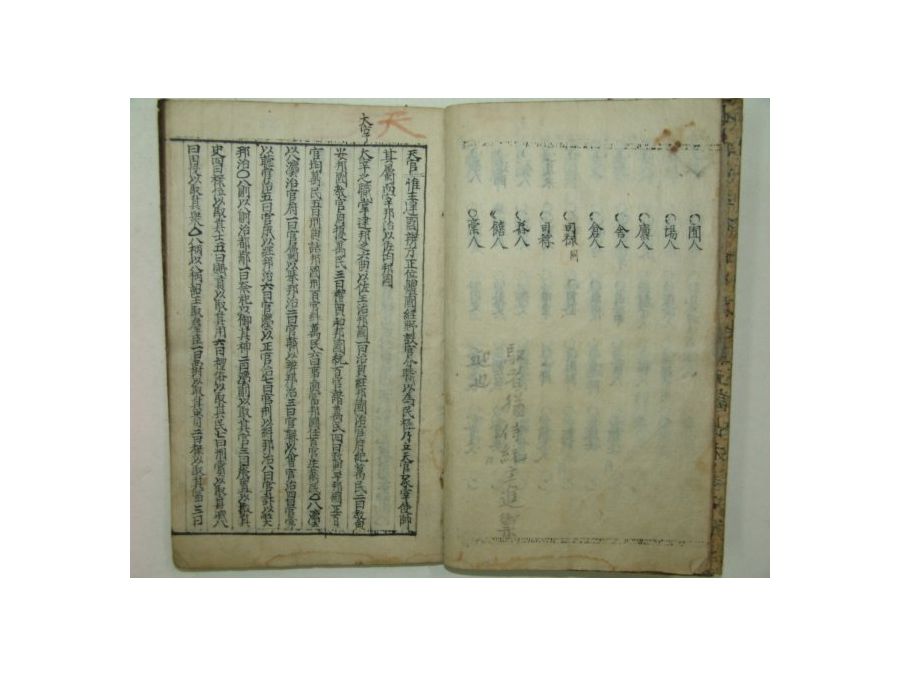 ○囿人
○場人
○廩人
○舍人
○倉人
○司祿 闕
○司稼
○舂人
○饎人
○槀人
近也
天
大宰
天官 惟王建國辨方正位體國經野設官分職以爲民極乃立天官冢宰使帥
其屬而掌邦治以佐王均邦國
大宰之職掌建邦之六典以佐王治邦國一曰治典經邦國治官府紀萬民二曰敎典
安邦國敎官府擾萬民三曰禮典和邦國統百官諧萬民四曰政典平邦國正百
官均萬民五曰刑典詰邦國刑百官糾萬民六曰事典富邦國任百官生萬民○八灋
以八灋治官府一曰官屬以舉邦治二曰官職以辨邦治三曰官聯以會官治四曰官常
以聽官治五曰官成以經邦治六曰官灋以正官治七曰官刑以糾邦治八曰官計以弊
邦治○八則以八則治都鄙一曰祭祀以馭其神二曰灋則以馭其官三曰廢置以馭其
吏四曰祿位以馭其士五曰賦貢以馭其用六曰禮俗以馭其民七曰刑賞以馭其威八
曰田役以馭其衆○八柄詔王馭羣臣一曰爵以馭其貴二曰祿以馭其富三曰